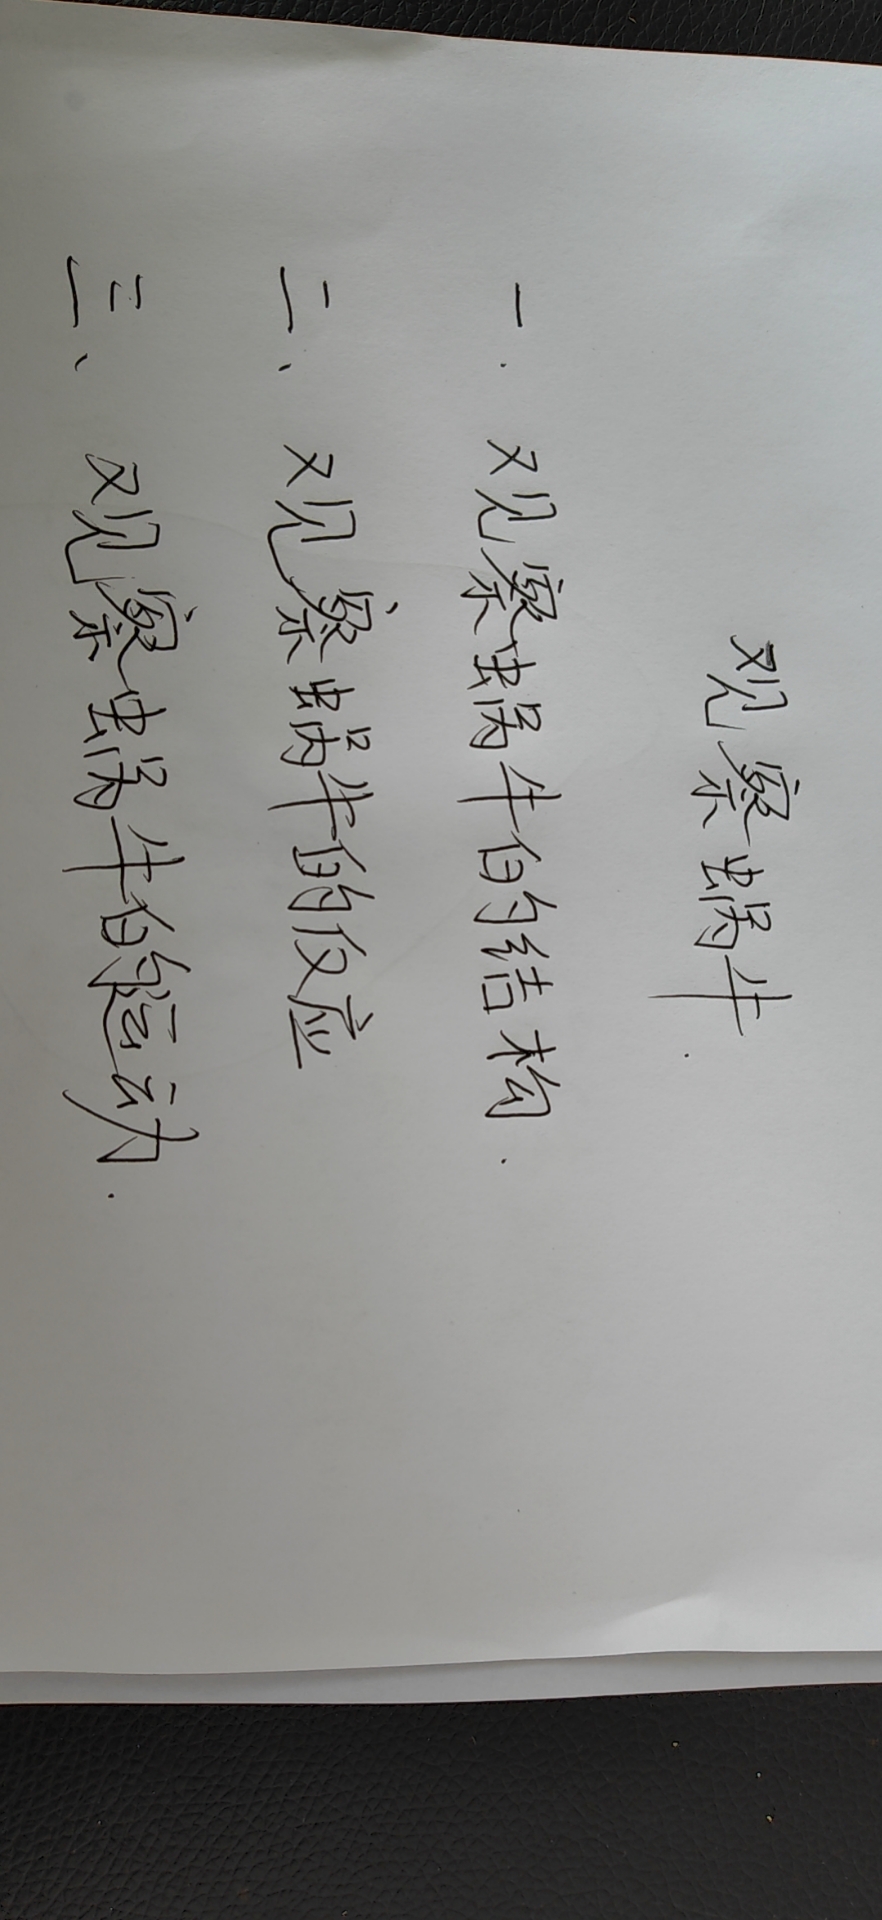 观察蜗牛.
一.观察蜗牛的结构.
二、观察蜗牛的反应
三、观察蜗牛的运动.